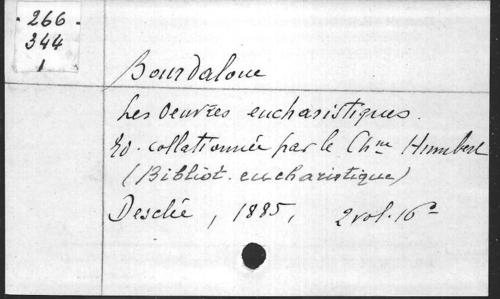 266
344
1
Bourdaloue
Les Oeuvres eucharistiques.
Ed. collationnée par le Chne Humbert
(Bibliot. eucharistique)
Desclée, 1885, 2 vol. 16°